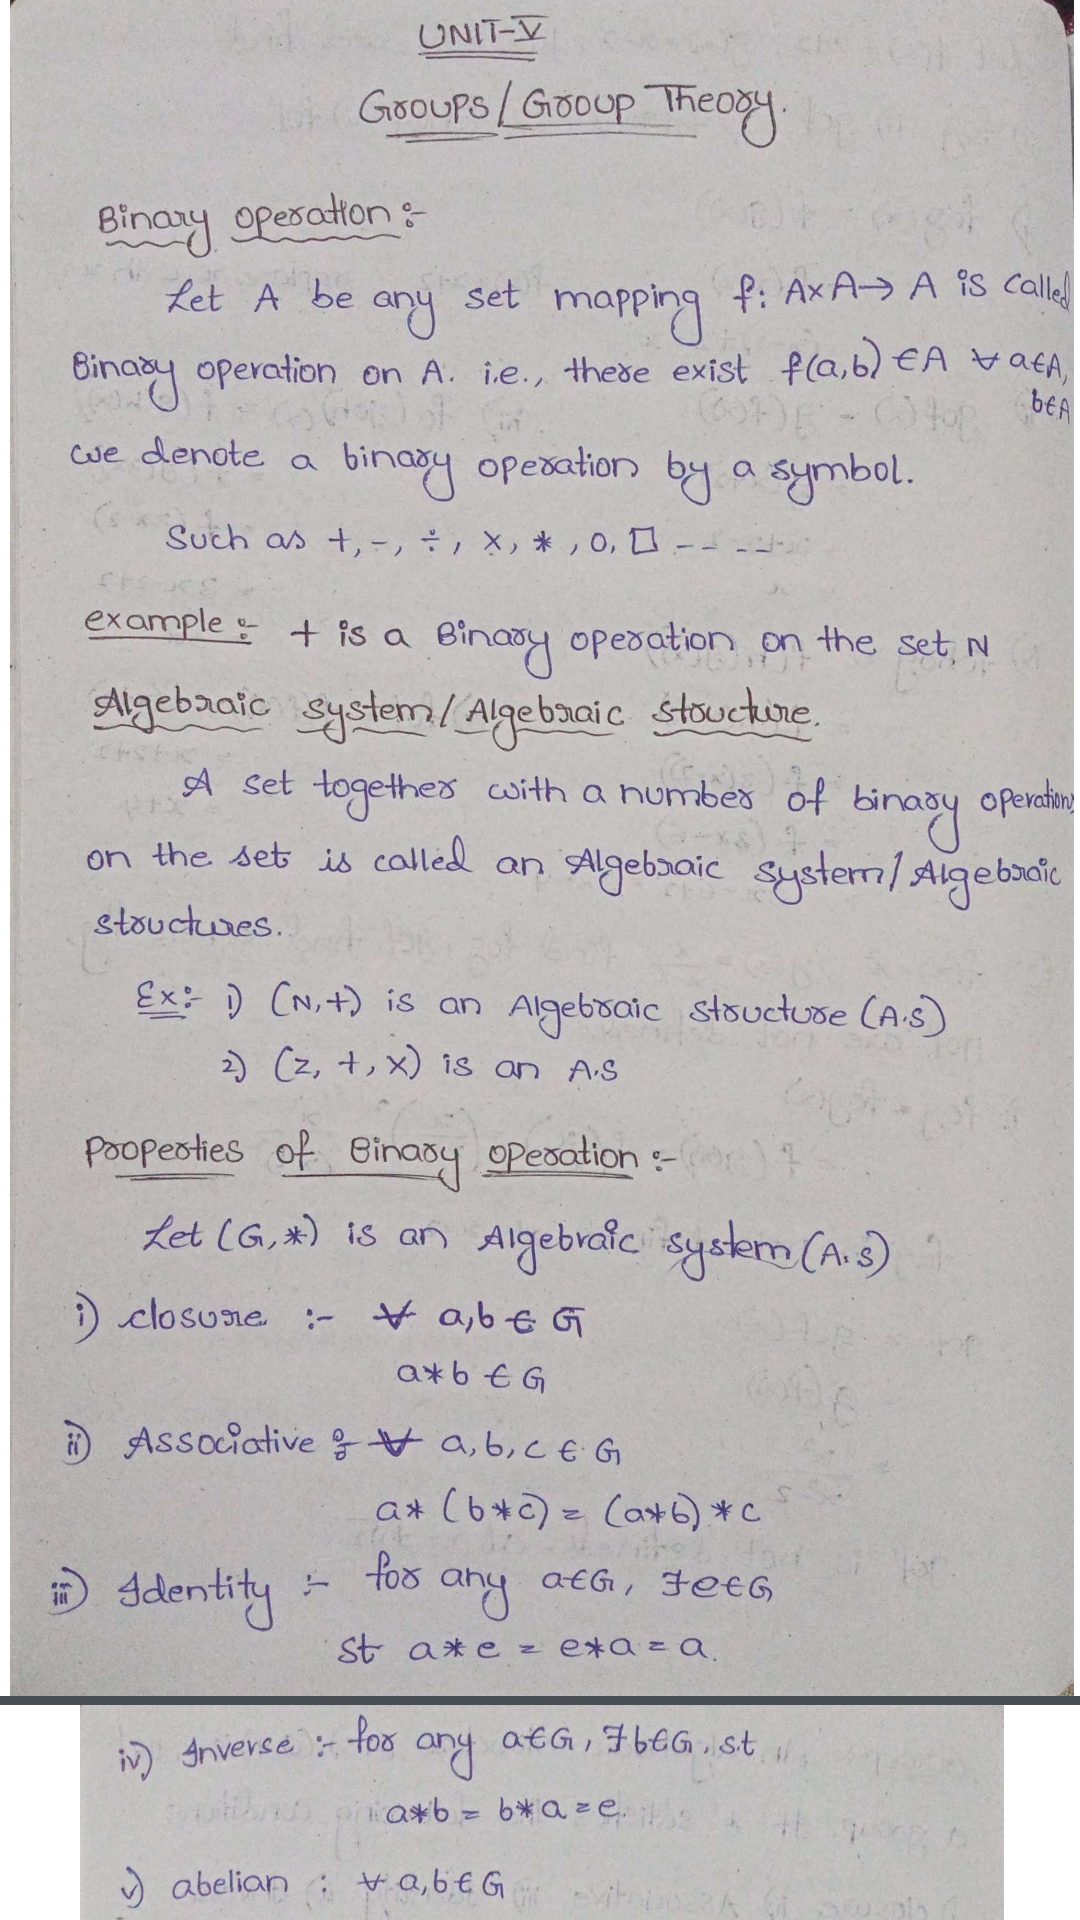 UNIT-V
Groups/Group Theory.
Binary operation :-
Let A be any set mapping f: A×A→ A is called
Binary operation on A. i.e., there exist f(a,b) ∈A ∀ a∈A,
b∈A
we denote a binary operation by a symbol.
Such as +, -, ÷, ×, *, 0, □ -- --
example :- + is a Binary operation on the set N
Algebraic system/Algebraic structure.
A set together with a number of binary operations
on the set is called an Algebraic system/Algebraic
structures.
Ex:- 1) (N,+) is an Algebraic structure (A.S)
2) (Z, +, ×) is an A.S
Properties of Binary operation :-
Let (G,*) is an Algebraic system (A.S)
i) closure :- ∀ a,b ∈ G
a*b ∈ G
ii) Associative :- ∀ a,b,c ∈ G
a* (b*c) = (a*b) *c
iii) Identity :- for any a∈G, ∃e∈G
st a*e = e*a = a.
iv) Inverse :- for any a∈G, ∃b∈G, s.t
a*b = b*a = e.
v) abelian : ∀ a,b∈G